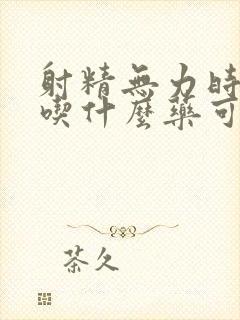 射精無力時
喫什麼藥可
茶久